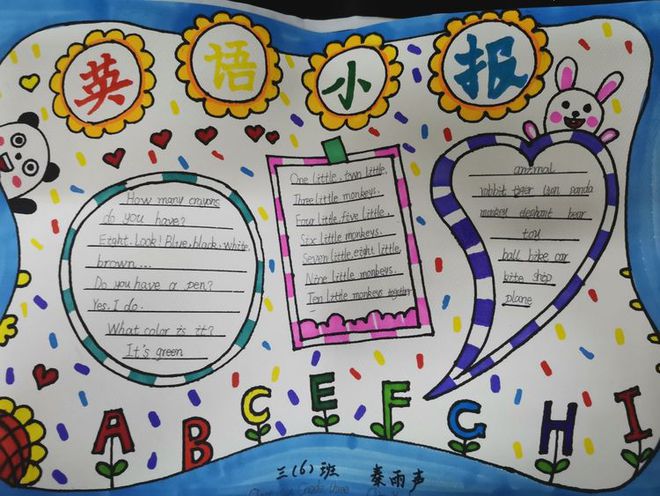 英语小报
How many crayons
do you have?
Eight. Look! Blue, black, white
brown...
Do you have a pen?
Yes, I do.
What color is it?
It's green
One little, town little,
Three little monkeys.
Four little, five little,
Six little monkeys.
Seven little, eight little,
Nine little monkeys.
Ten little monkeys together
anamal
rabbit tiger lion panda
monkey elephant bear
toy
ball bike car
kite ship
plane
A B C E F G H I
三(6)班 秦雨声